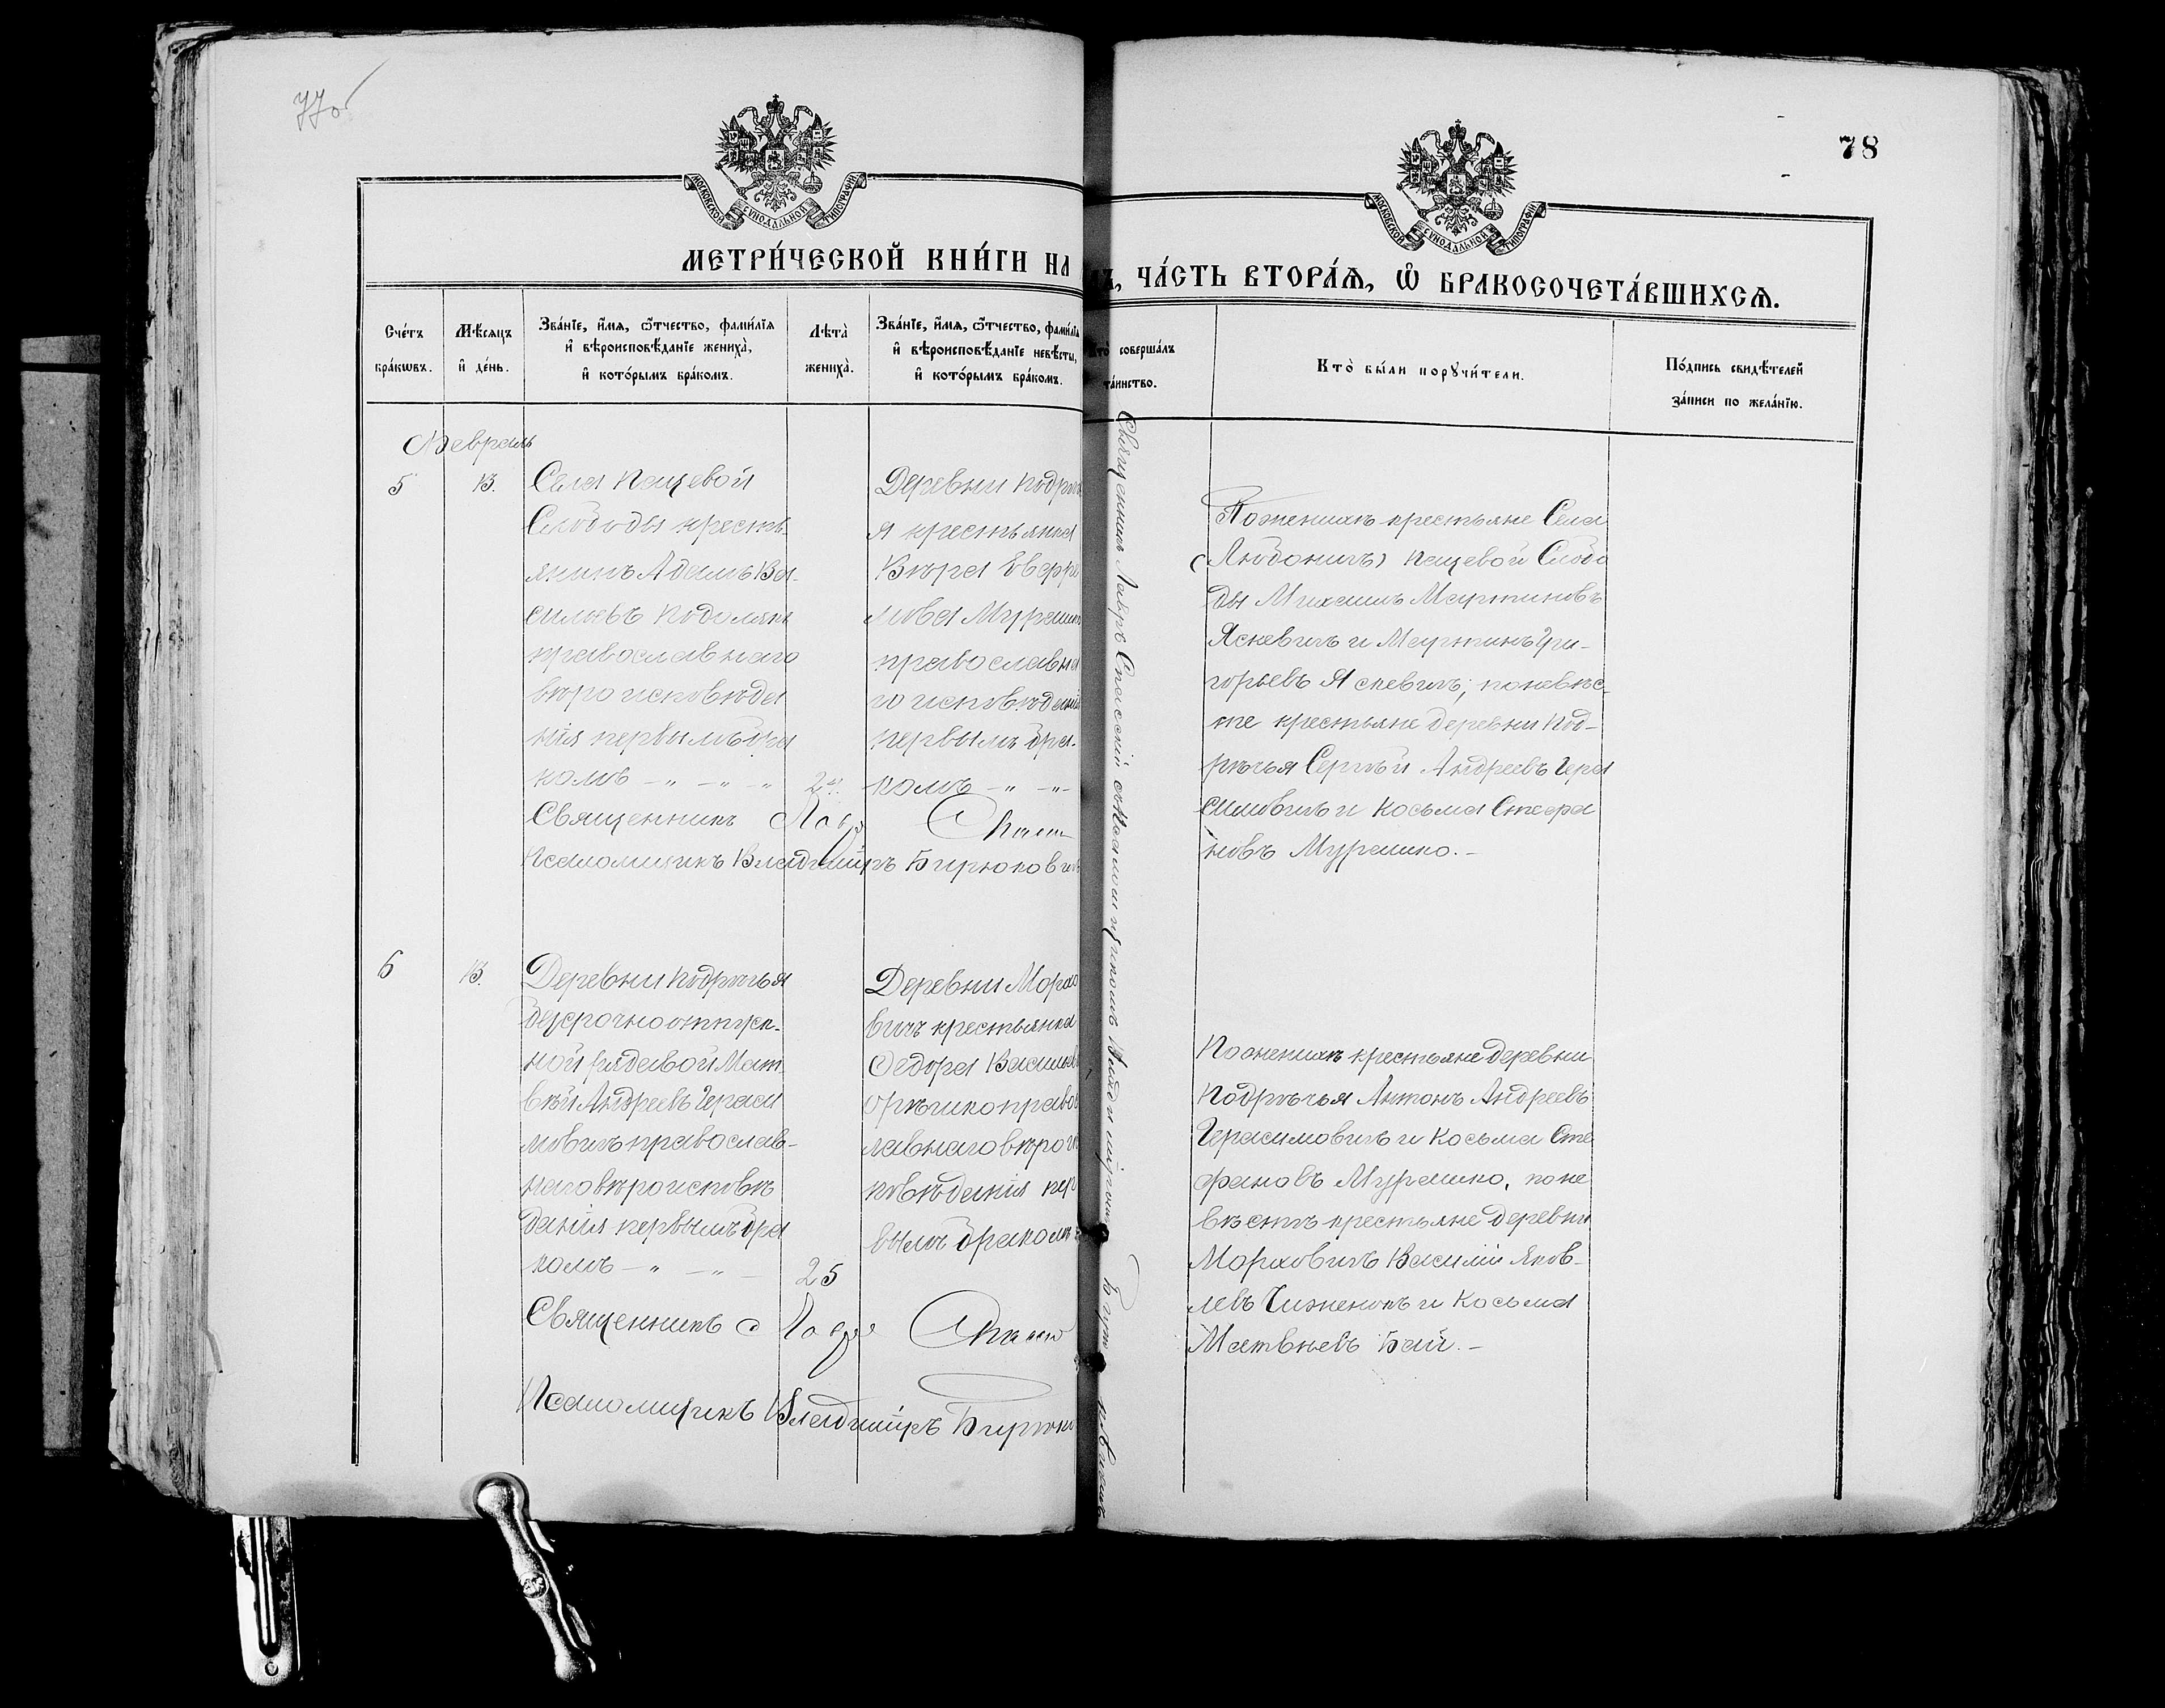 77об
78
МОСКОВСКОЙ СѴНОДАЛЬНОЙ ТИПОГРАФІИ
МОСКОВСКОЙ СѴНОДАЛЬНОЙ ТИПОГРАФІИ
МЕТРИ́ЧЕСКОЙ КНИ́ГИ НА
Ъ, ЧА́СТЬ ВТОРА́Ѧ, Ѽ БРАКОСОЧЕТА́ВШИХСѦ.
Сче́тъ
бра́кѡвъ.
Мѣ́сяцъ
и҆ де́нь.
Зва́нїе, и҆́мѧ, ѻ҆́тчество, фами́лїѧ
и҆ вѣроисповѣ́данїе жениха̀,
и҆ кото́рымъ бра́комъ.
Лѣ́та̀
жениха̀.
Зва́нїе, и҆́мѧ, ѻ҆́тчество, фами́лїѧ
и҆ вѣроисповѣ́данїе невѣ́сты,
и҆ кото́рымъ бра́комъ.
Кто̀ соверша́лъ
та́инство.
Кто̀ бы́ли порꙋчи́тели.
По́дпись свидѣ́телей
за́писи по жела́нїю.
Февраль
5
13.
Села Пащевой
Слободы кресть-
янинъ Адамъ Ва-
сильевъ Подолякъ
православнаго
вѣроисповѣда
нія первымъ бра
комъ – „ – „ – „
Священникъ Лавръ
Псаломщикъ Владиміръ Бирюкович
Деревни Подрѣчь
я крестьянка
Вѣра Евфре
мова Мурашко
православна
го исповѣданія
первымъ бра-
комъ – „ – „ –
Поженихѣ крестьяне Села
(Любоничъ) Пащевой Слобо
ды Михаилъ Мартиновъ
Ясневичъ и Мартинъ Гри-
горьевъ Ясневичъ; поневѣс-
те крестьяне деревни Под-
рѣчья Сергѣй Андреевъ Гера
симовичъ и Косьма Стефа
новъ Мурашко. –
6
13.
Деревни Подрѣчья
безсрочноотпуск-
ной рядовой Мат
вѣй Андреевъ Гераси
мовичъ православ-
наго вѣроисповѣ
данія первымъ бра
комъ – „ – „ –
25
Священникъ Лавръ
Псаломщикъ Владиміръ Бирюко
Деревни Морхо
вичъ крестьянка
Федора Васильев
Орѣшко правос
лавнаго вѣроис
повѣданія пер
вымъ бракомъ
Поженихѣ крестьяне деревни
Подрѣчья Антонъ Андреевъ
Герасимовичъ и Косьма Сте
фановъ Мурашко, поне
вѣстѣ крестьяне деревни
Морховичъ Василій Яков-
левъ Чиженокъ и Косьма
Матвѣевъ Бай. –
Священникъ Лавръ Спасскій съ Псаломщикомъ Владиміромъ Бирюковичемъ